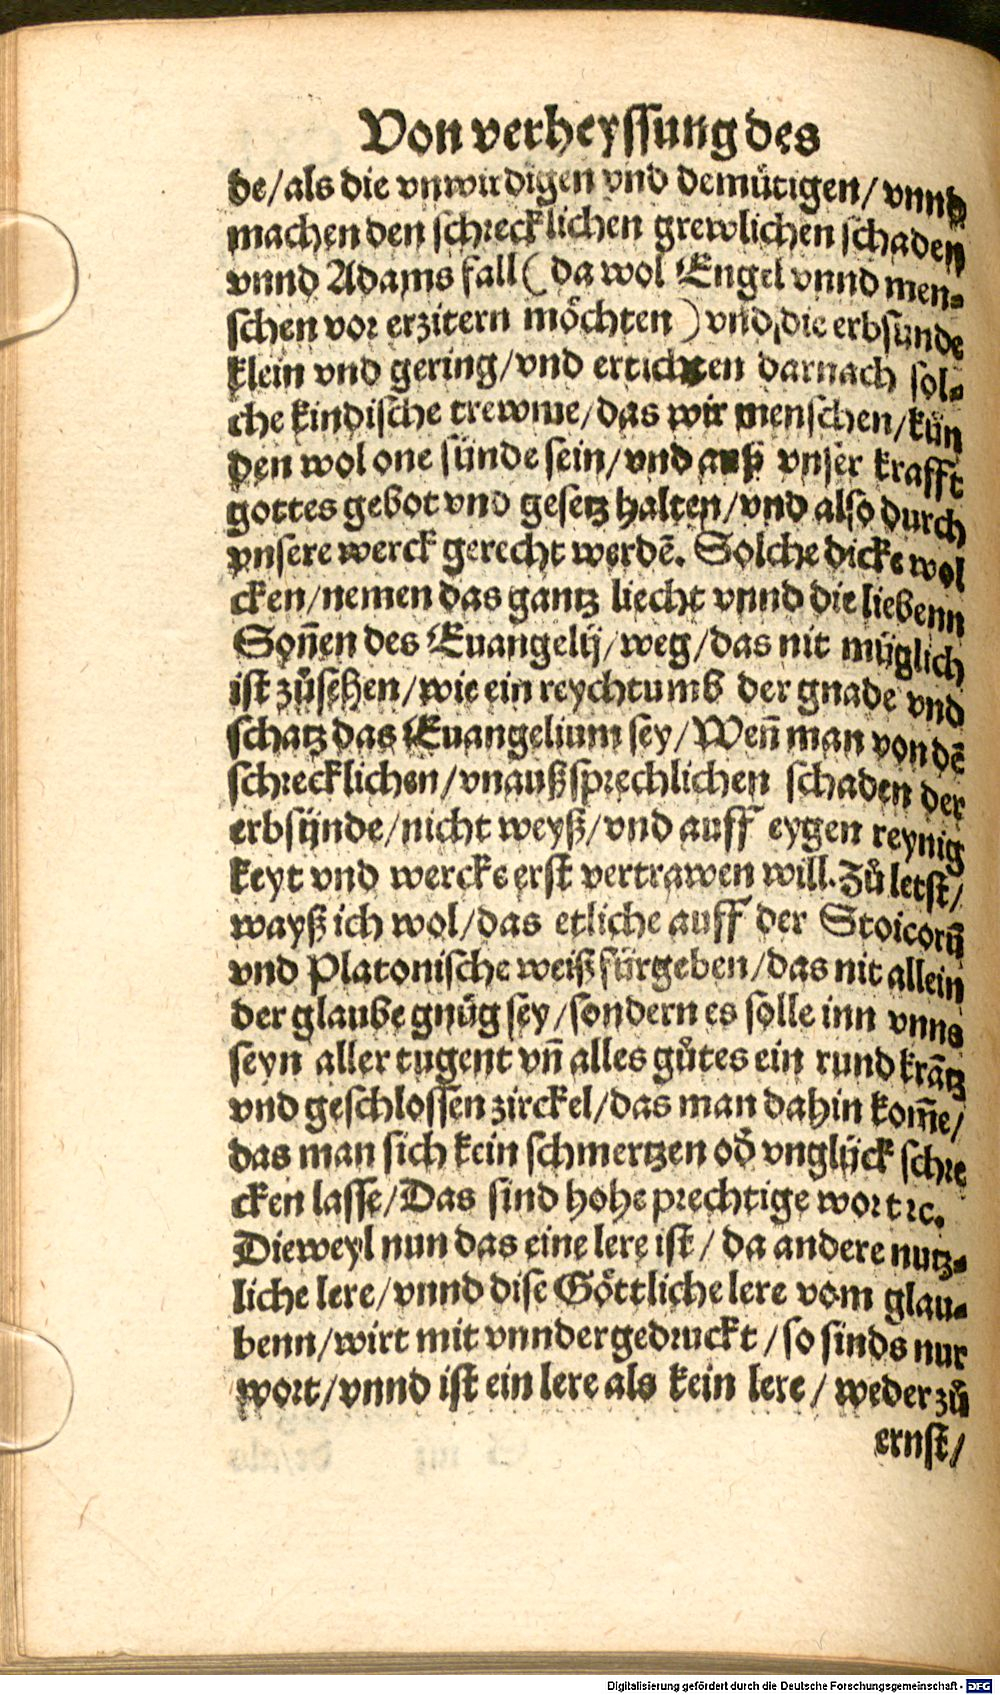 Von verheyssung des
de/als die vnwirdigen vnd demütigen/ vnnd
machen den schrecklichen grewlichen schaden
vnnd Adams fall (da wol Engel vnnd men⸗
schen vor erzitern möchten) vnd die erbsunde
klein vnd gering/vnd ertichten darnach sol⸗
che kindische trewme/das wir menschen/kün
den wol one sünde sein/vnd auß vnser krafft
gottes gebot vnd gesetz halten/vnd also durch
vnsere werck gerecht werdẽ. Solche dicke wol
cken/nemen das gantz liecht vnnd die liebenn
Soñen des Euangelij/weg/das nit müglich
ist zůsehen/wie ein reychtumb der gnade vnd
schatz das Euangelium sey/Weñ man von dẽ
schrecklichen/vnaußsprechlichen schaden der
erbsünde/nicht weyß/vnd auff eygen reynig
keyt vnd werckes erst vertrawen will. Zů letst/
wayß ich wol/das etliche auff der Stoicorũ
vnd Platonische weiß fürgeben/das nit allein
der glaube gnůg sey/sondern es solle inn vnns
seyn aller tugent vñ alles gůtes ein rund krãtz
vnd geschlossen zirckel/das man dahin kom̃e/
das man sich kein schmertzen od̕ vnglück schre
cken lasse/Das sind hohe prechtige wort ꝛc.
Dieweyl nun das eine lere ist/ da andere nutz⸗
liche lere/vnnd dise Göttliche lere vom glau⸗
benn/wirt mit vnndergedruckt/so sinds nur
wort/vnnd ist ein lere als kein lere/ weder zů
ernst/
Digitalisierung gefördert durch die Deutsche Forschungsgemeinschaft - DFG